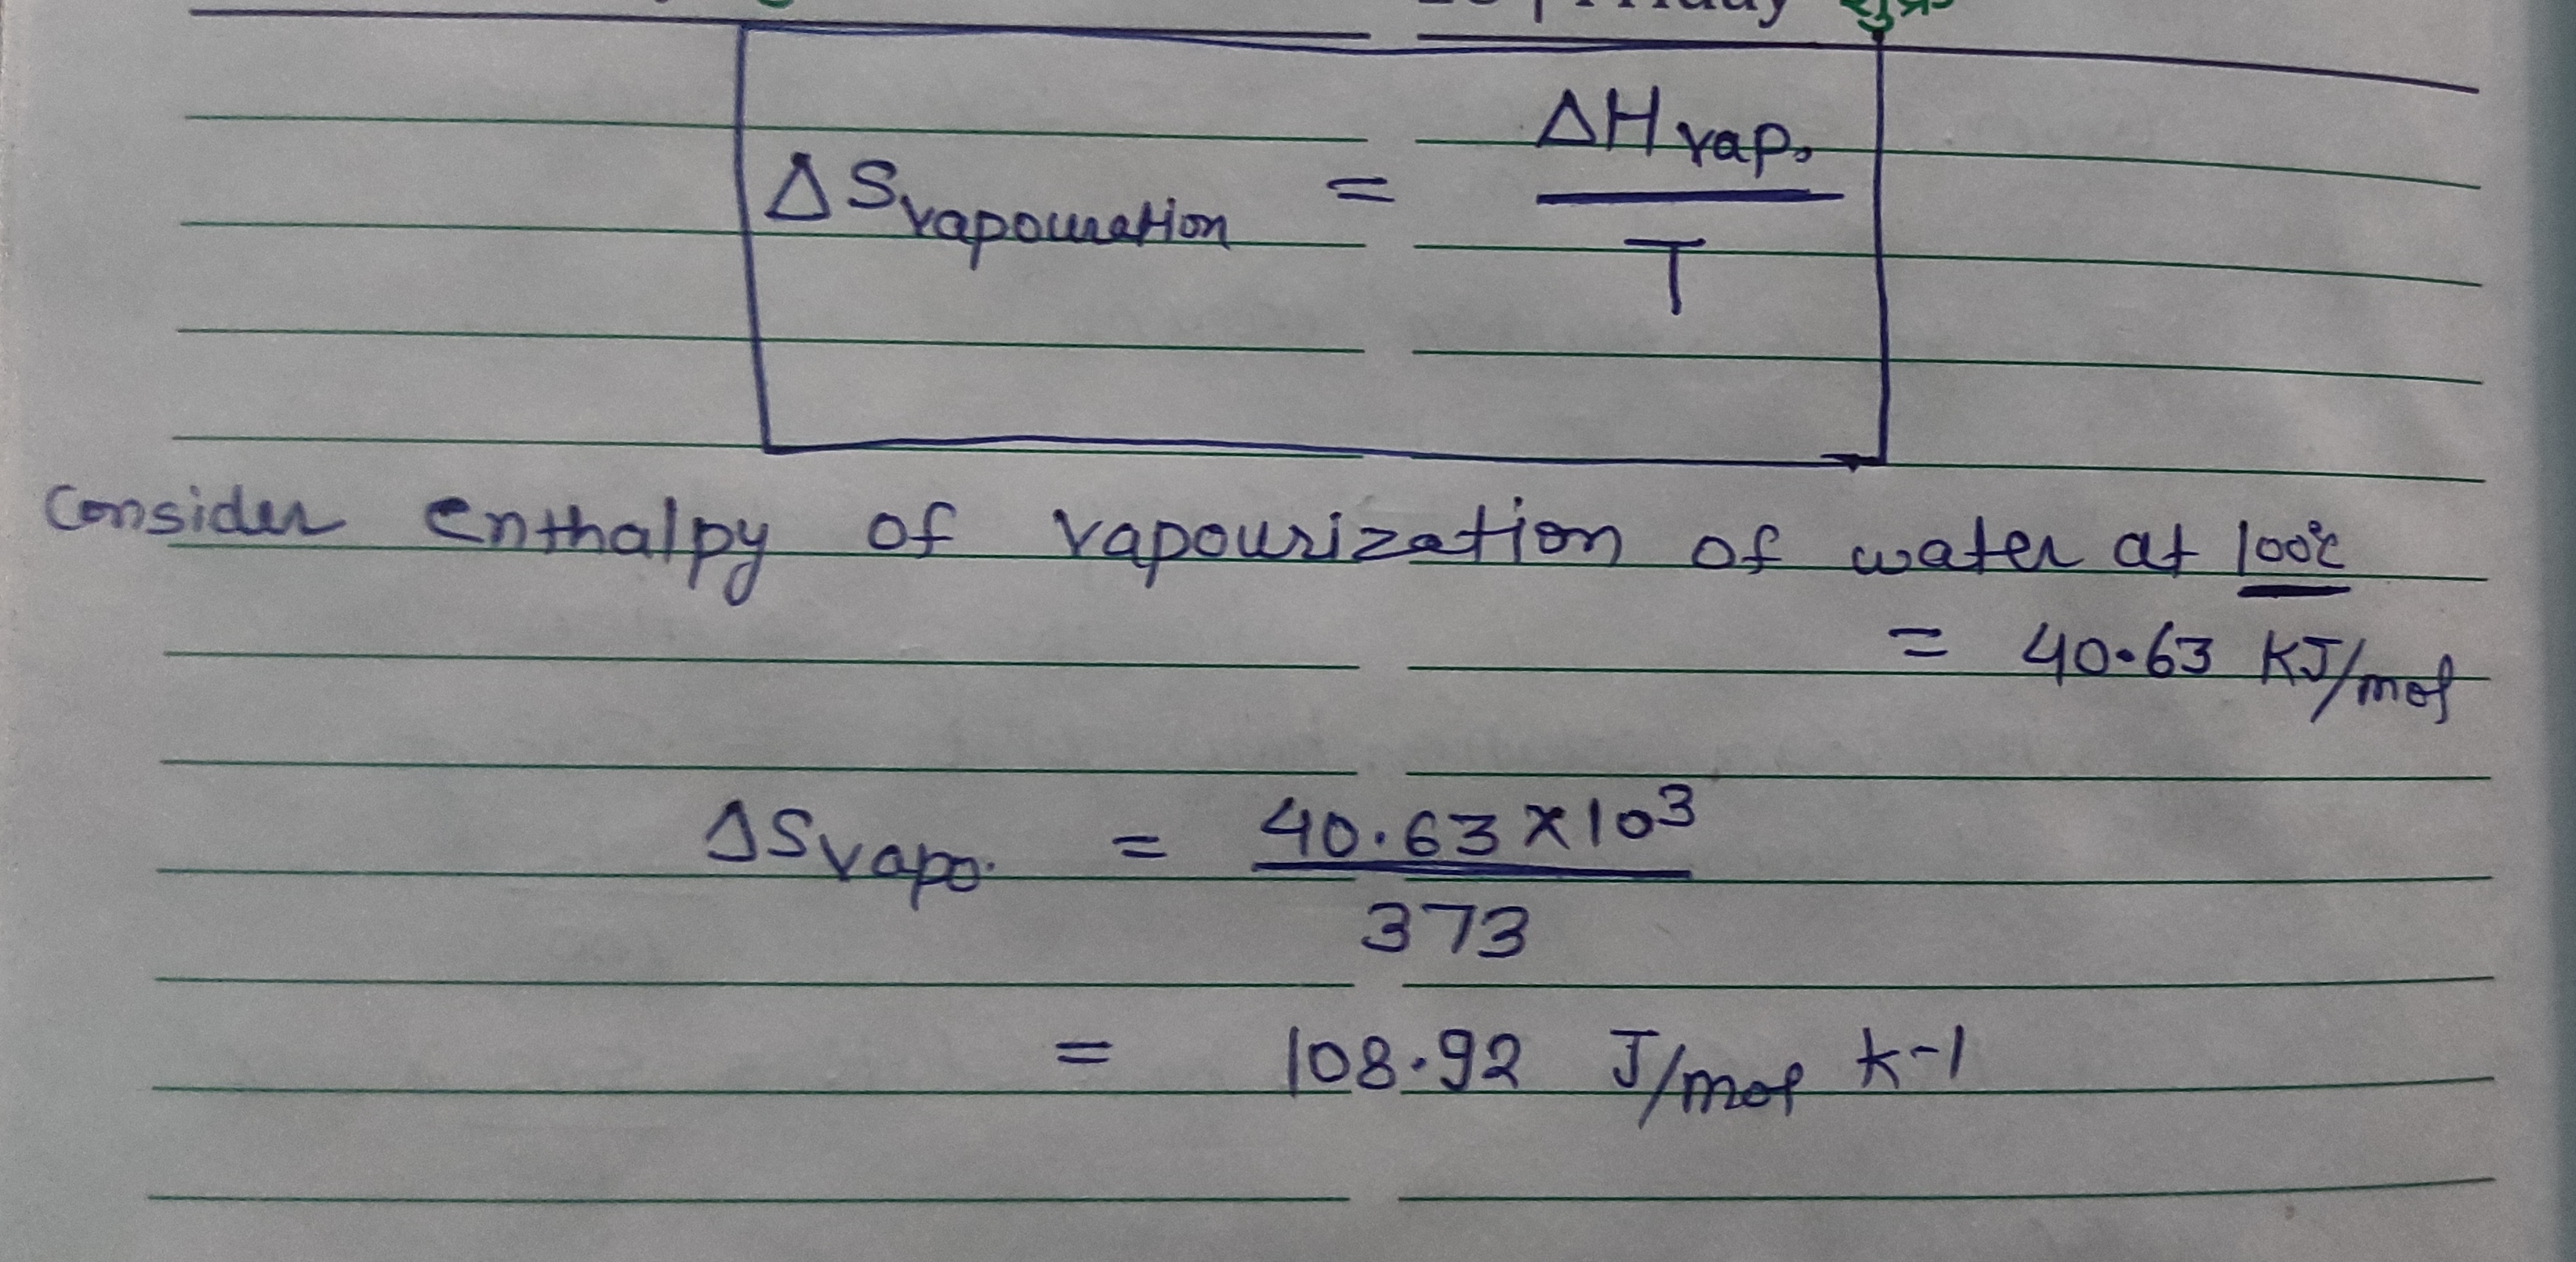 Friday शुक्र
ΔS vapouration = ΔH vap. / T
Consider enthalpy of vapourization of water at 100°c
= 40.63 KJ/mol
ΔS vapo. = 40.63 x 10³ / 373
= 108.92 J/mol k-1